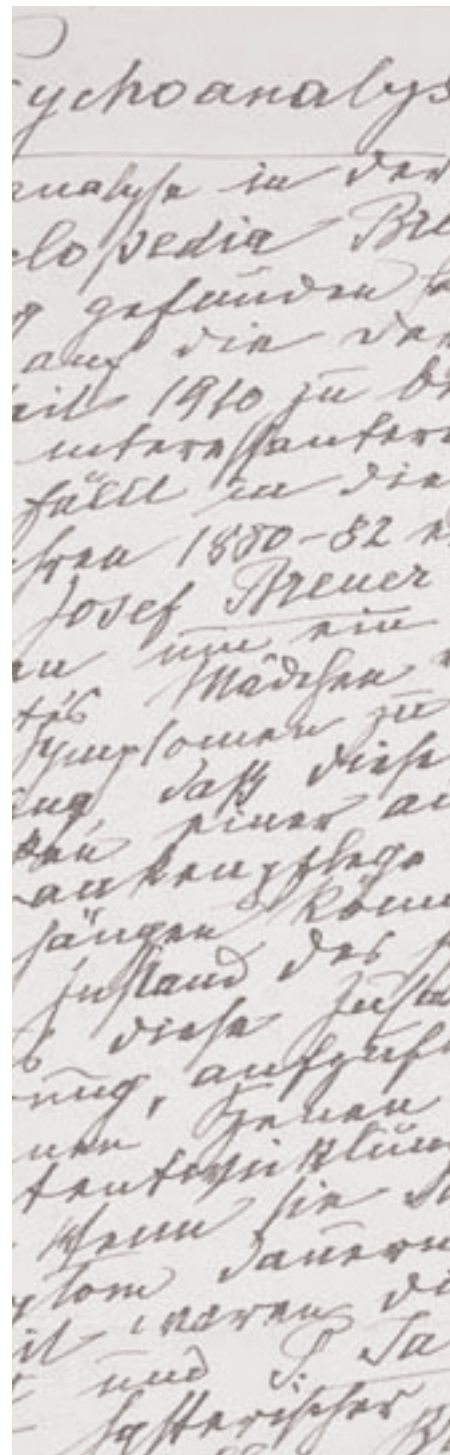 ychoanalys
analyse in der
clopedia Bre
gefunden
auf die
eit 1910 zu be
interessanter
fällt in die
hren 1880-82
Josef Breuer
en um ein
tes Mädchen
Symptomen zu
ung, daß diese
einer
ankenpflege
hängen könn
Zustand des
diese Zustä
rung, aufzuf
ner Szenen
tentwicklung
Wenn sie
ptom dauern
it waren di
und
hysterischer